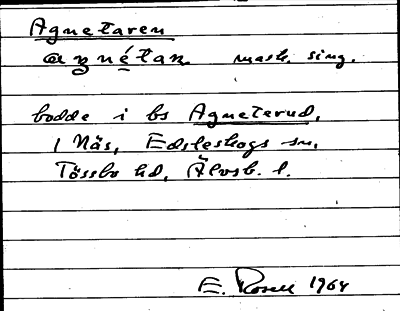 Agnetaren
agnétan mask. sing.
bodde i bs Agneterud,
i Näs, Edsleskogs sn,
Tössbo hd, Älvsb. l.
E. Rosell 1964